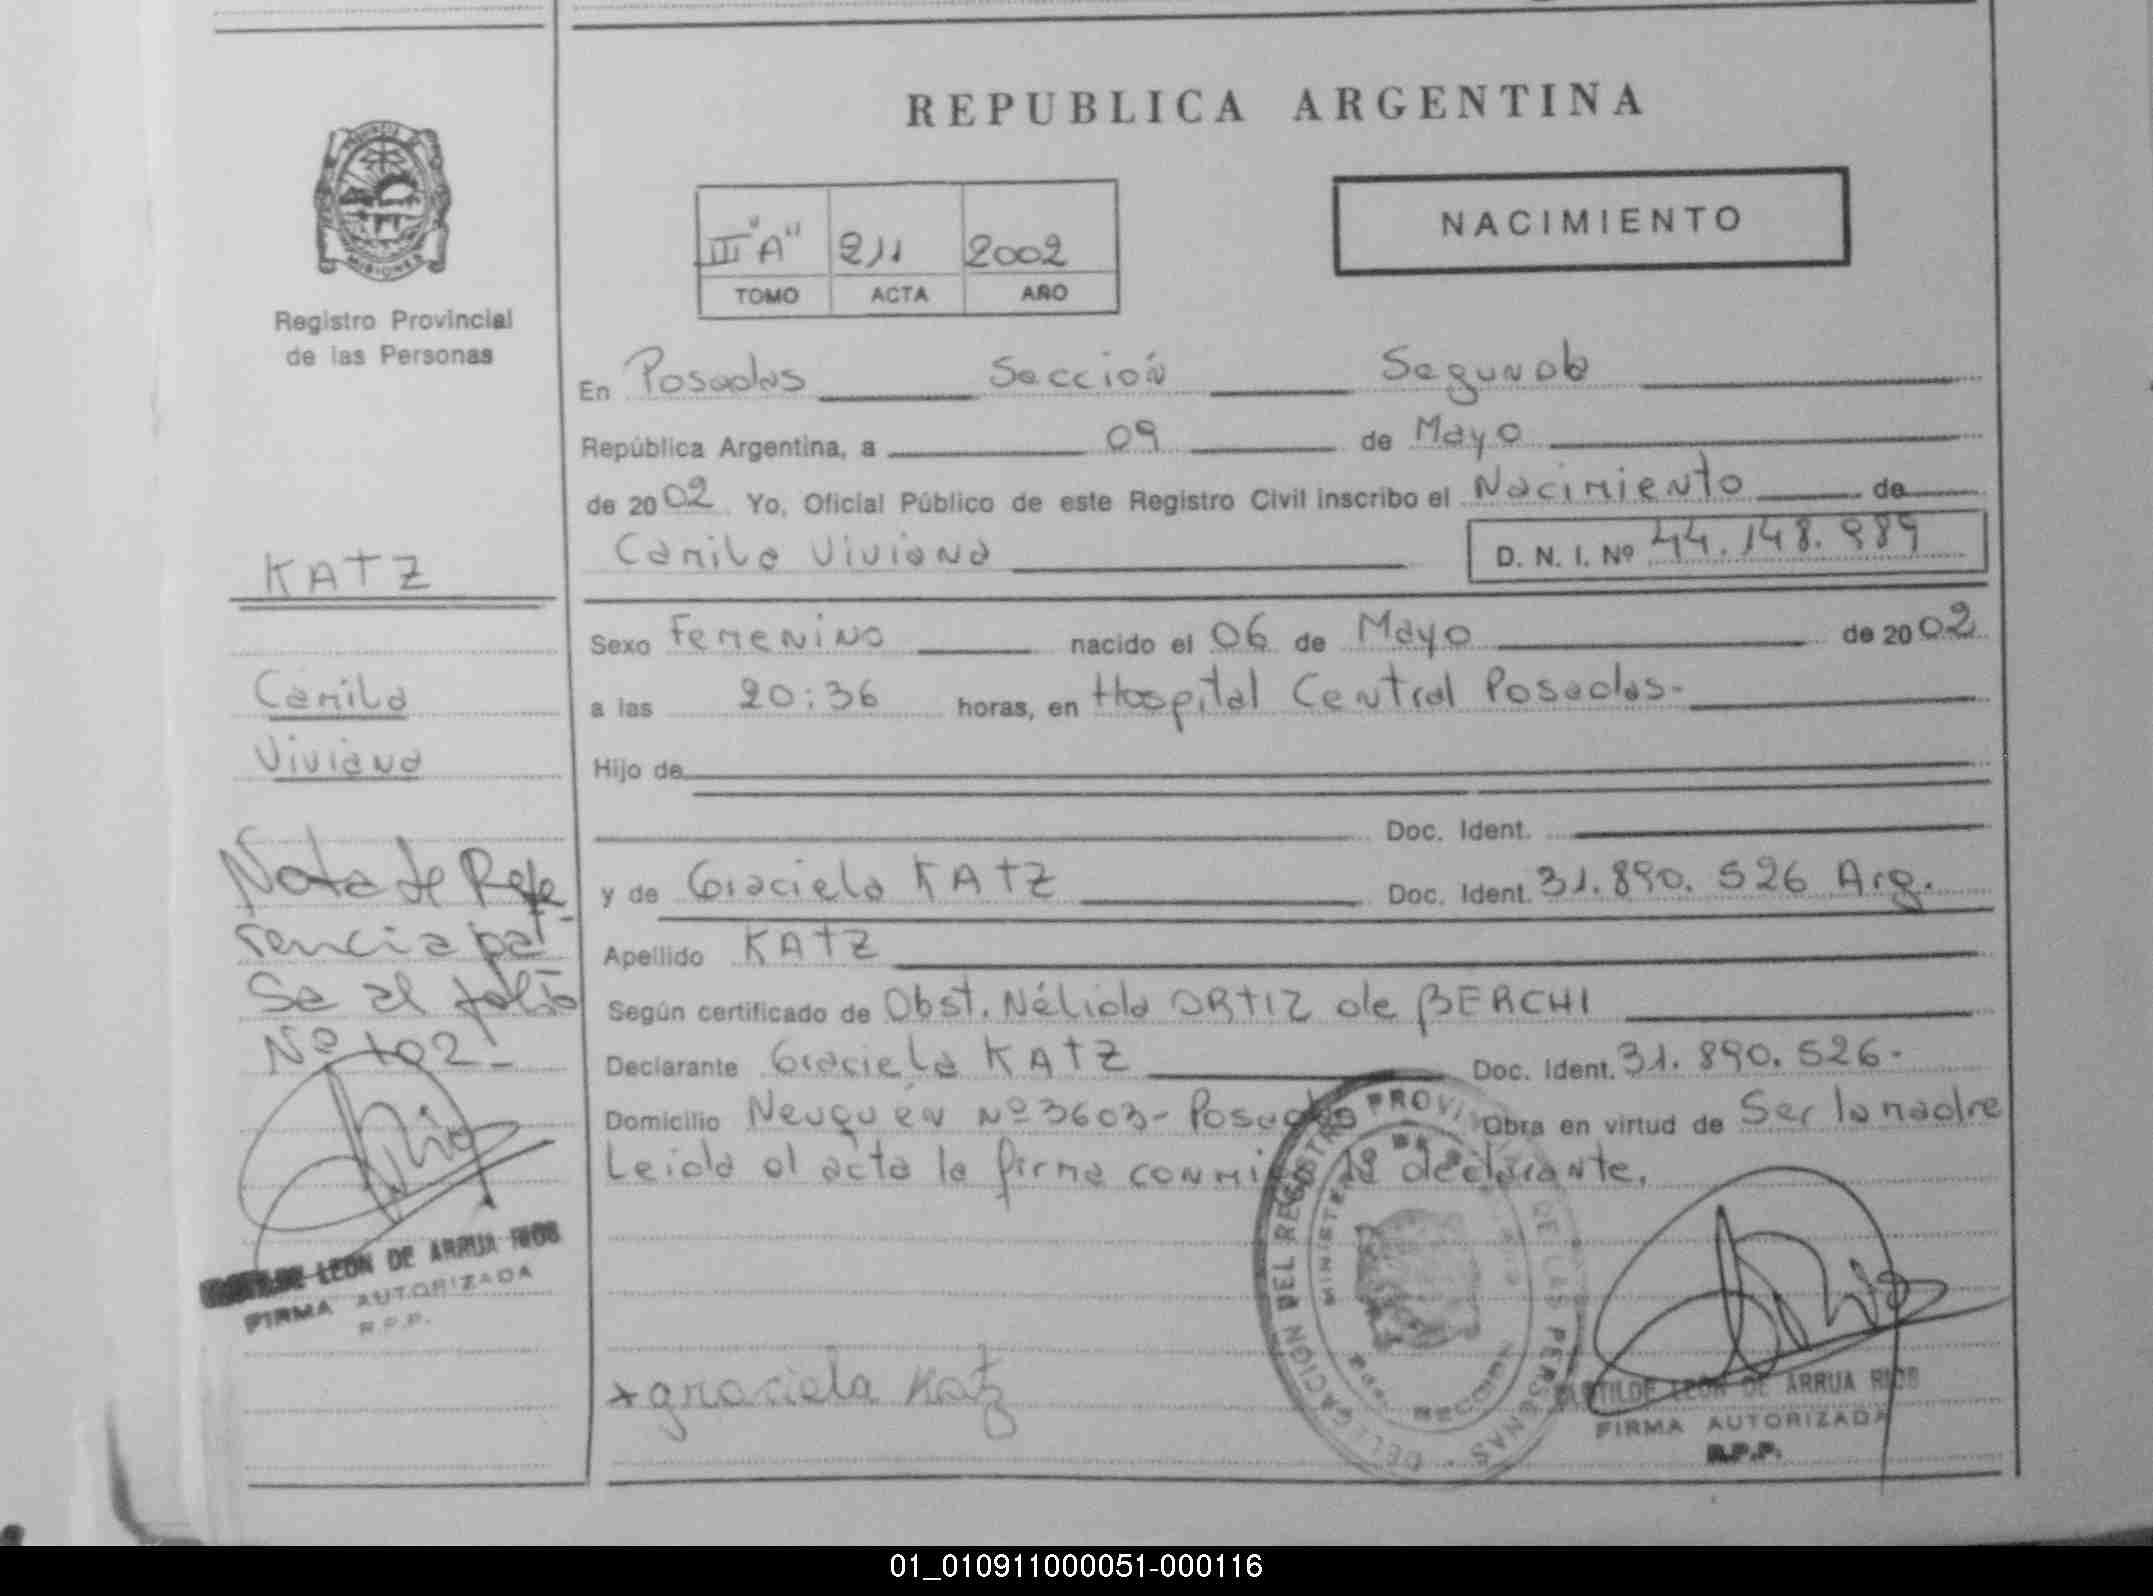 REPUBLICA ARGENTINA
NACIMIENTO
III "A" 211 2002
TOMO ACTA AÑO
MISIONES
Registro Provincial
de las Personas
En Posadas Sección Segunda
República Argentina, a 09 de Mayo
de 2002 Yo, Oficial Público de este Registro Civil inscribo el Nacimiento de
Camila Viviana D. N. I. Nº 44.148.989
KATZ
Camila
Viviana
Sexo Femenino nacido el 06 de Mayo de 2002
a las 20:36 horas, en Hospital Central Posadas-
Hijo de
Doc. Ident.
y de Graciela KATZ Doc. Ident. 31.890.526 Arg.
Apellido KATZ
Según certificado de Obst. Nélida ORTIZ de BERCHI
Declarante Graciela KATZ Doc. Ident. 31.890.526-
Domicilio Neuquén Nº 3603- Posadas Obra en virtud de Ser la madre
Leida el acta la firma conmigo la declarante.
Nota de Refe
rencia pa-
Se al folio
Nº 102-
LEON DE ARRUA RIOS
FIRMA AUTORIZADA
R.P.P.
x graciela Katz
DELEGACION DEL REGISTRO PROVINCIAL DE LAS PERSONAS
CLOTILDE LEON DE ARRUA RIOS
FIRMA AUTORIZADA
R.P.P.
01_010911000051-000116